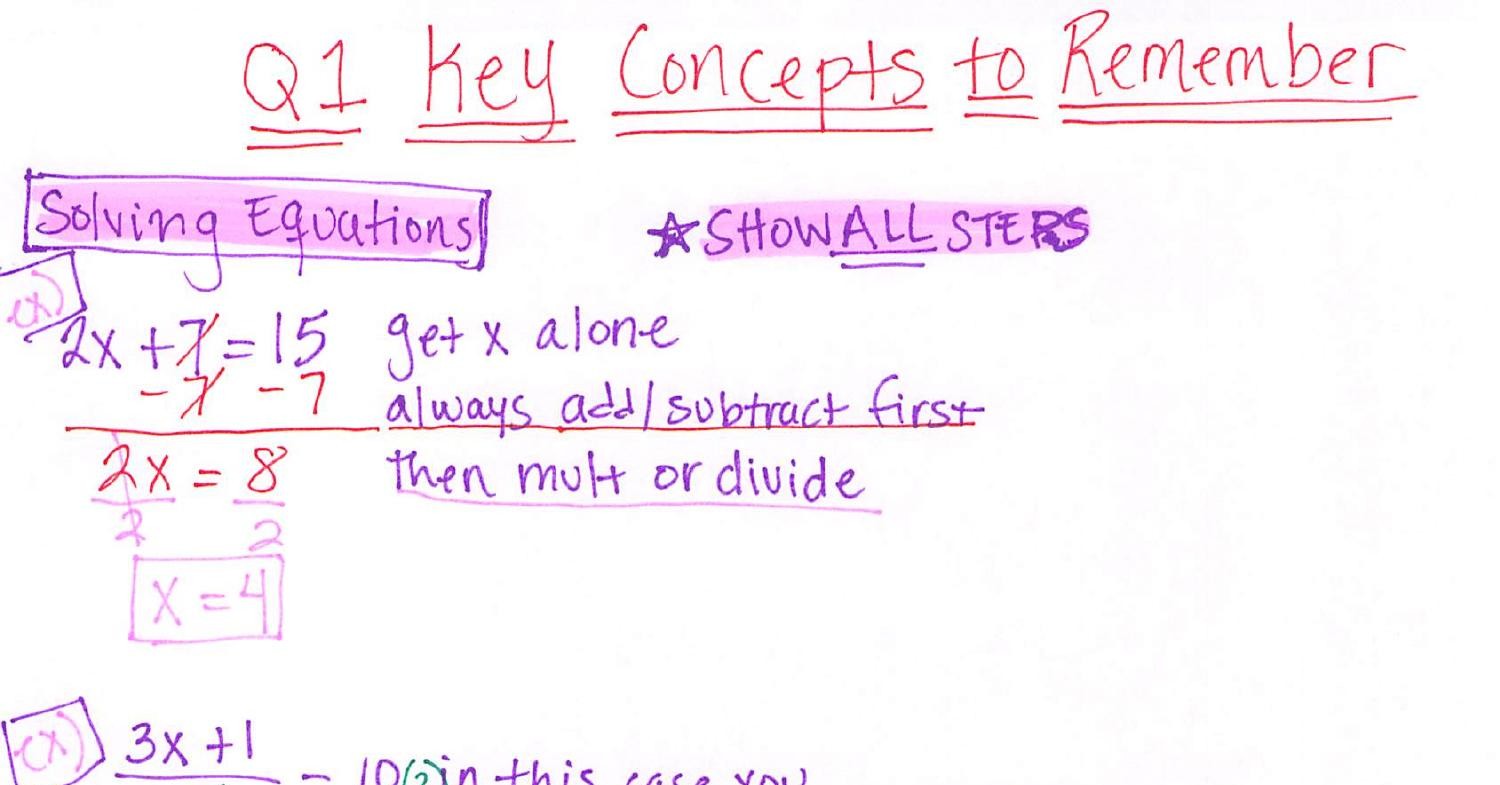 Q1 Key Concepts to Remember
Solving Equations ☆ SHOW ALL STEPS
ex)
2x + 7 = 15 get x alone
- 7 - 7 always add/subtract first
2x = 8 then mult or divide
2 2
x = 4
ex) 3x + 1
in this case you